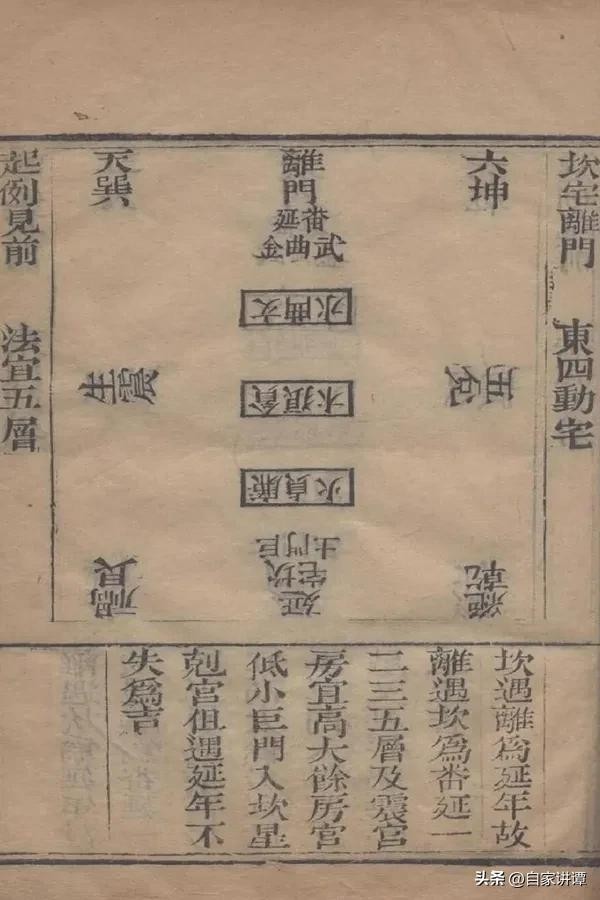 坎宅離門 東四動宅
六坤
離門
畨延
武曲金
天巽
文曲水
兌五
貪狼木
震生
廉貞火
巨門土
坎宅
延
乾絕
艮禍
起例見前 法宜五層
坎遇離爲延年故
離遇坎爲畨延一
二三五層及震宮
房宜高大餘房宮
低小巨門入坎星
剋宮但遇延年不
失爲吉
头条 @自家讲谭